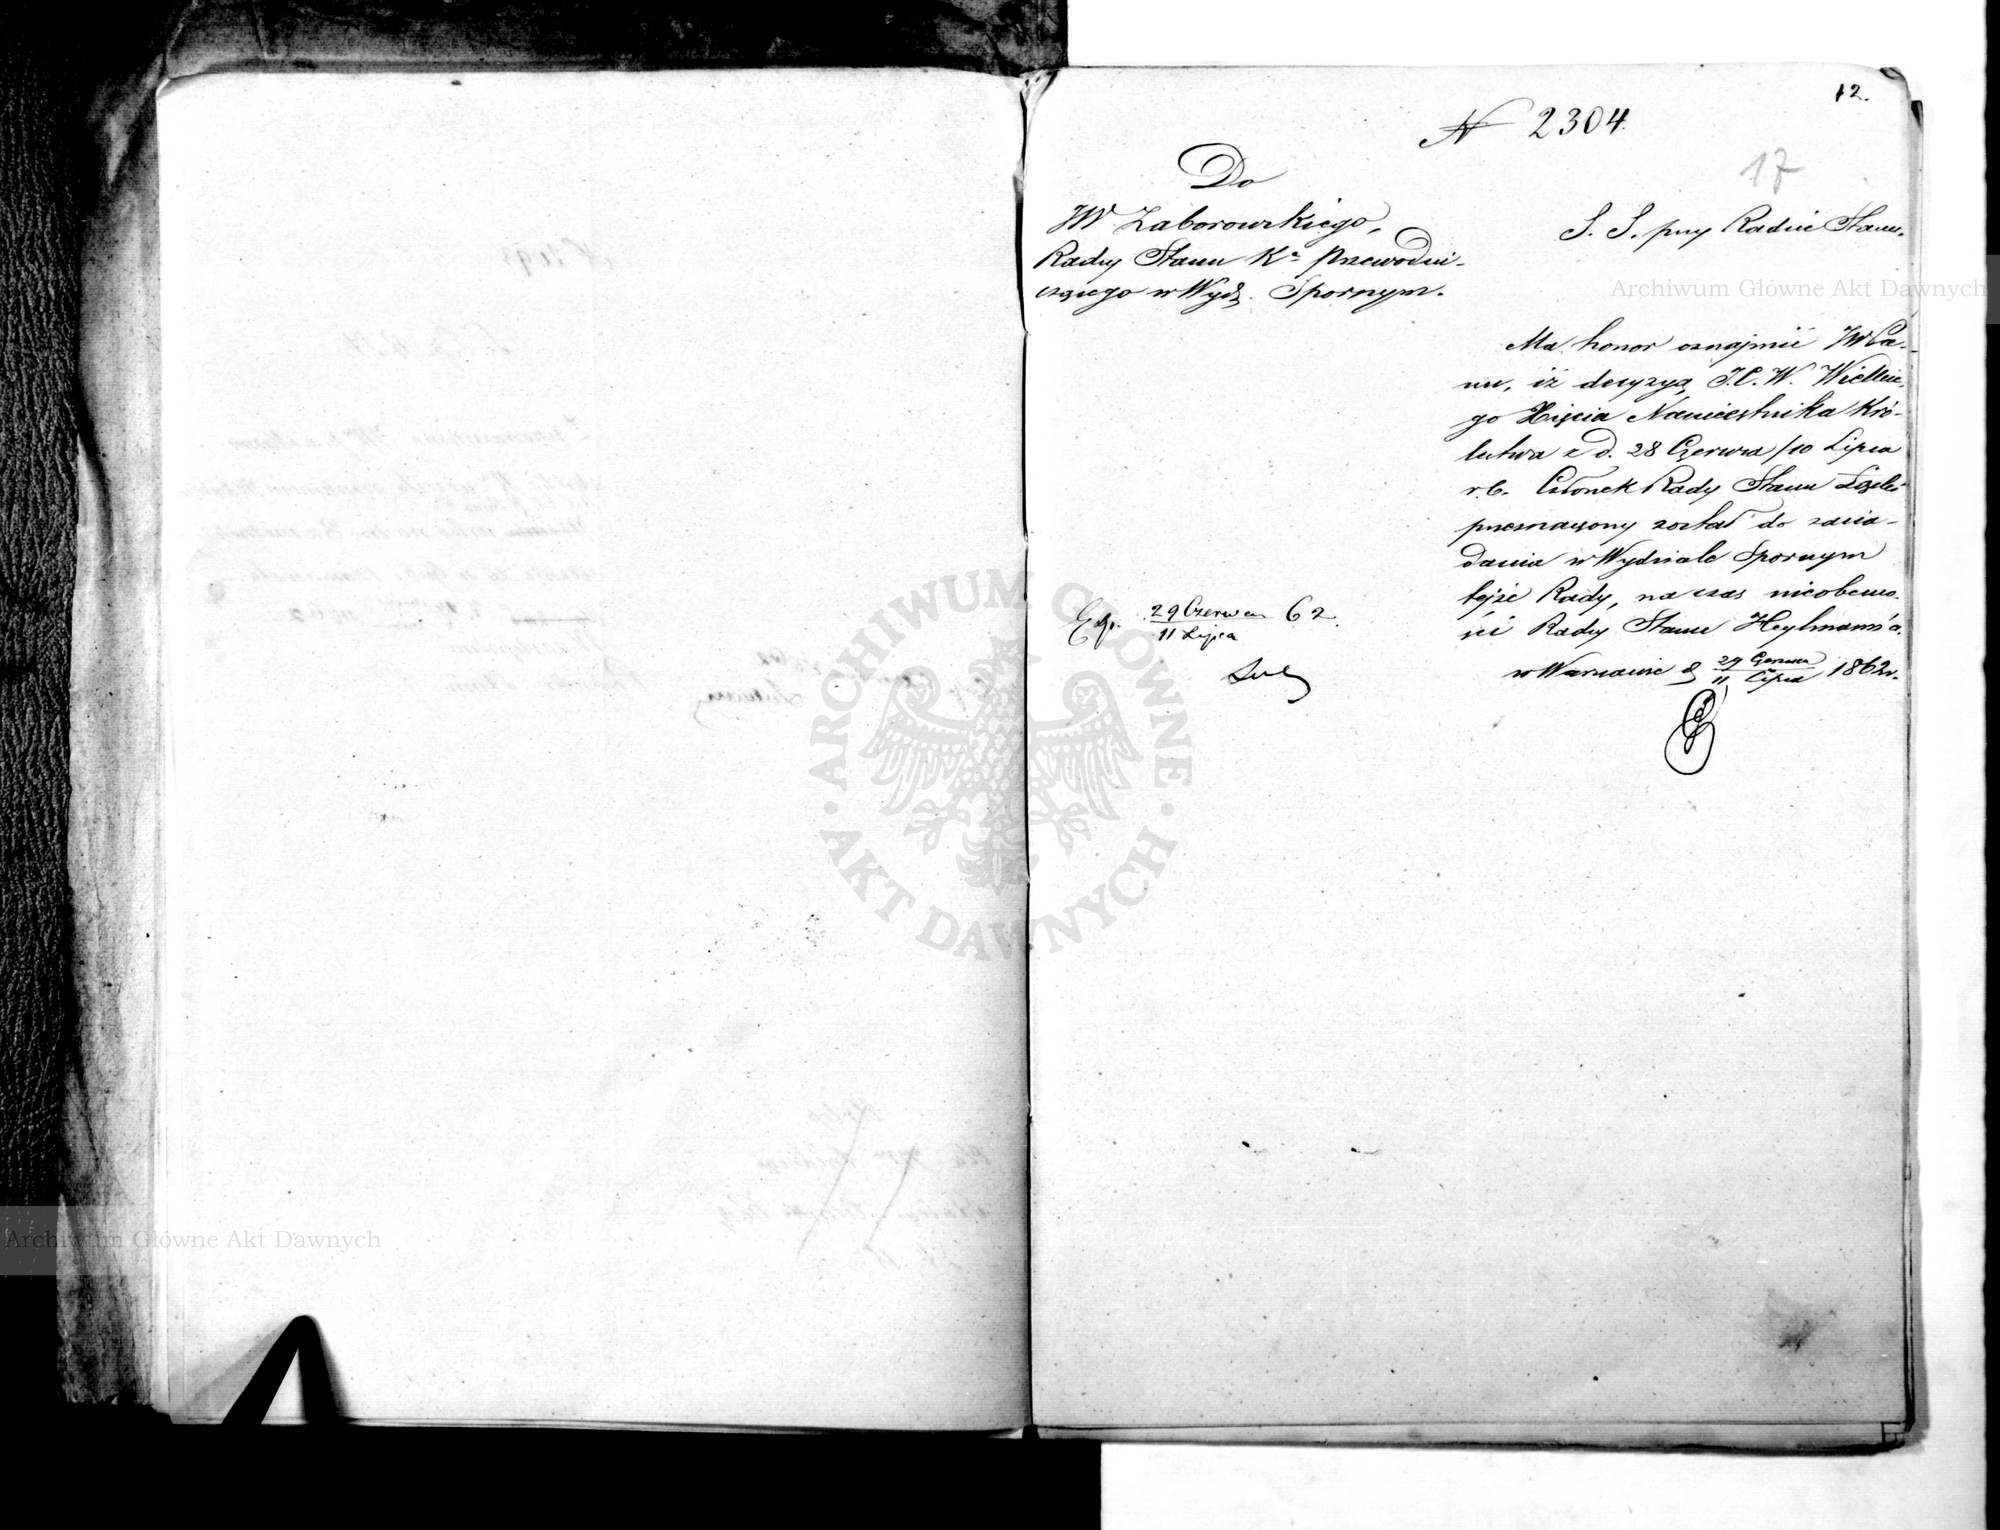 12.
N 2304.
17
Do
JW Zaborowskiego,
Radcy Stanu Ko Przewodni-
czącego w Wydz. Spornym.
S. S. przy Radzie Stanu.
Ma honor oznajmić JWPa-
nu, iż decyzyą J.C.W. Wielkie-
go Xięcia Namiestnika Kró-
lestwa z d. 28 Czerwca/10 Lipca
r.b. Członek Rady Stanu
przeznaczony został do zasia-
dania w Wydziale Spornym
tejże Rady, na czas nieobecno-
ści Radcy Stanu Heylman'a.
w Warszawie d 29 Czerwca / 11 Lipca 1862 r.
Exp. 29 Czerwca / 11 Lipca 62.
ARCHIWUM GŁÓWNE
AKT DAWNYCH
Archiwum Główne Akt Dawnych
Archiwum Główne Akt Dawnych